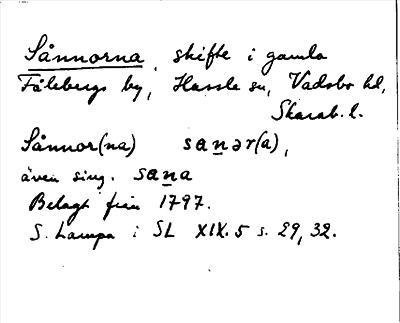 Sånnorna, skifte i gamla
Fålebergs by, Hassle sn, Vadsbo hd,
Skarab. l.
Sånnor(na) sanər(a),
även sing. sana
Belagt från 1797.
S. Lampa i SL XIX.5 s. 29, 32.